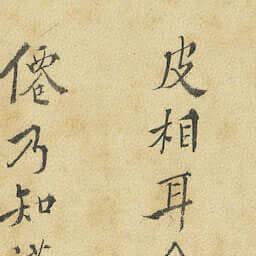 皮相耳
僊乃知